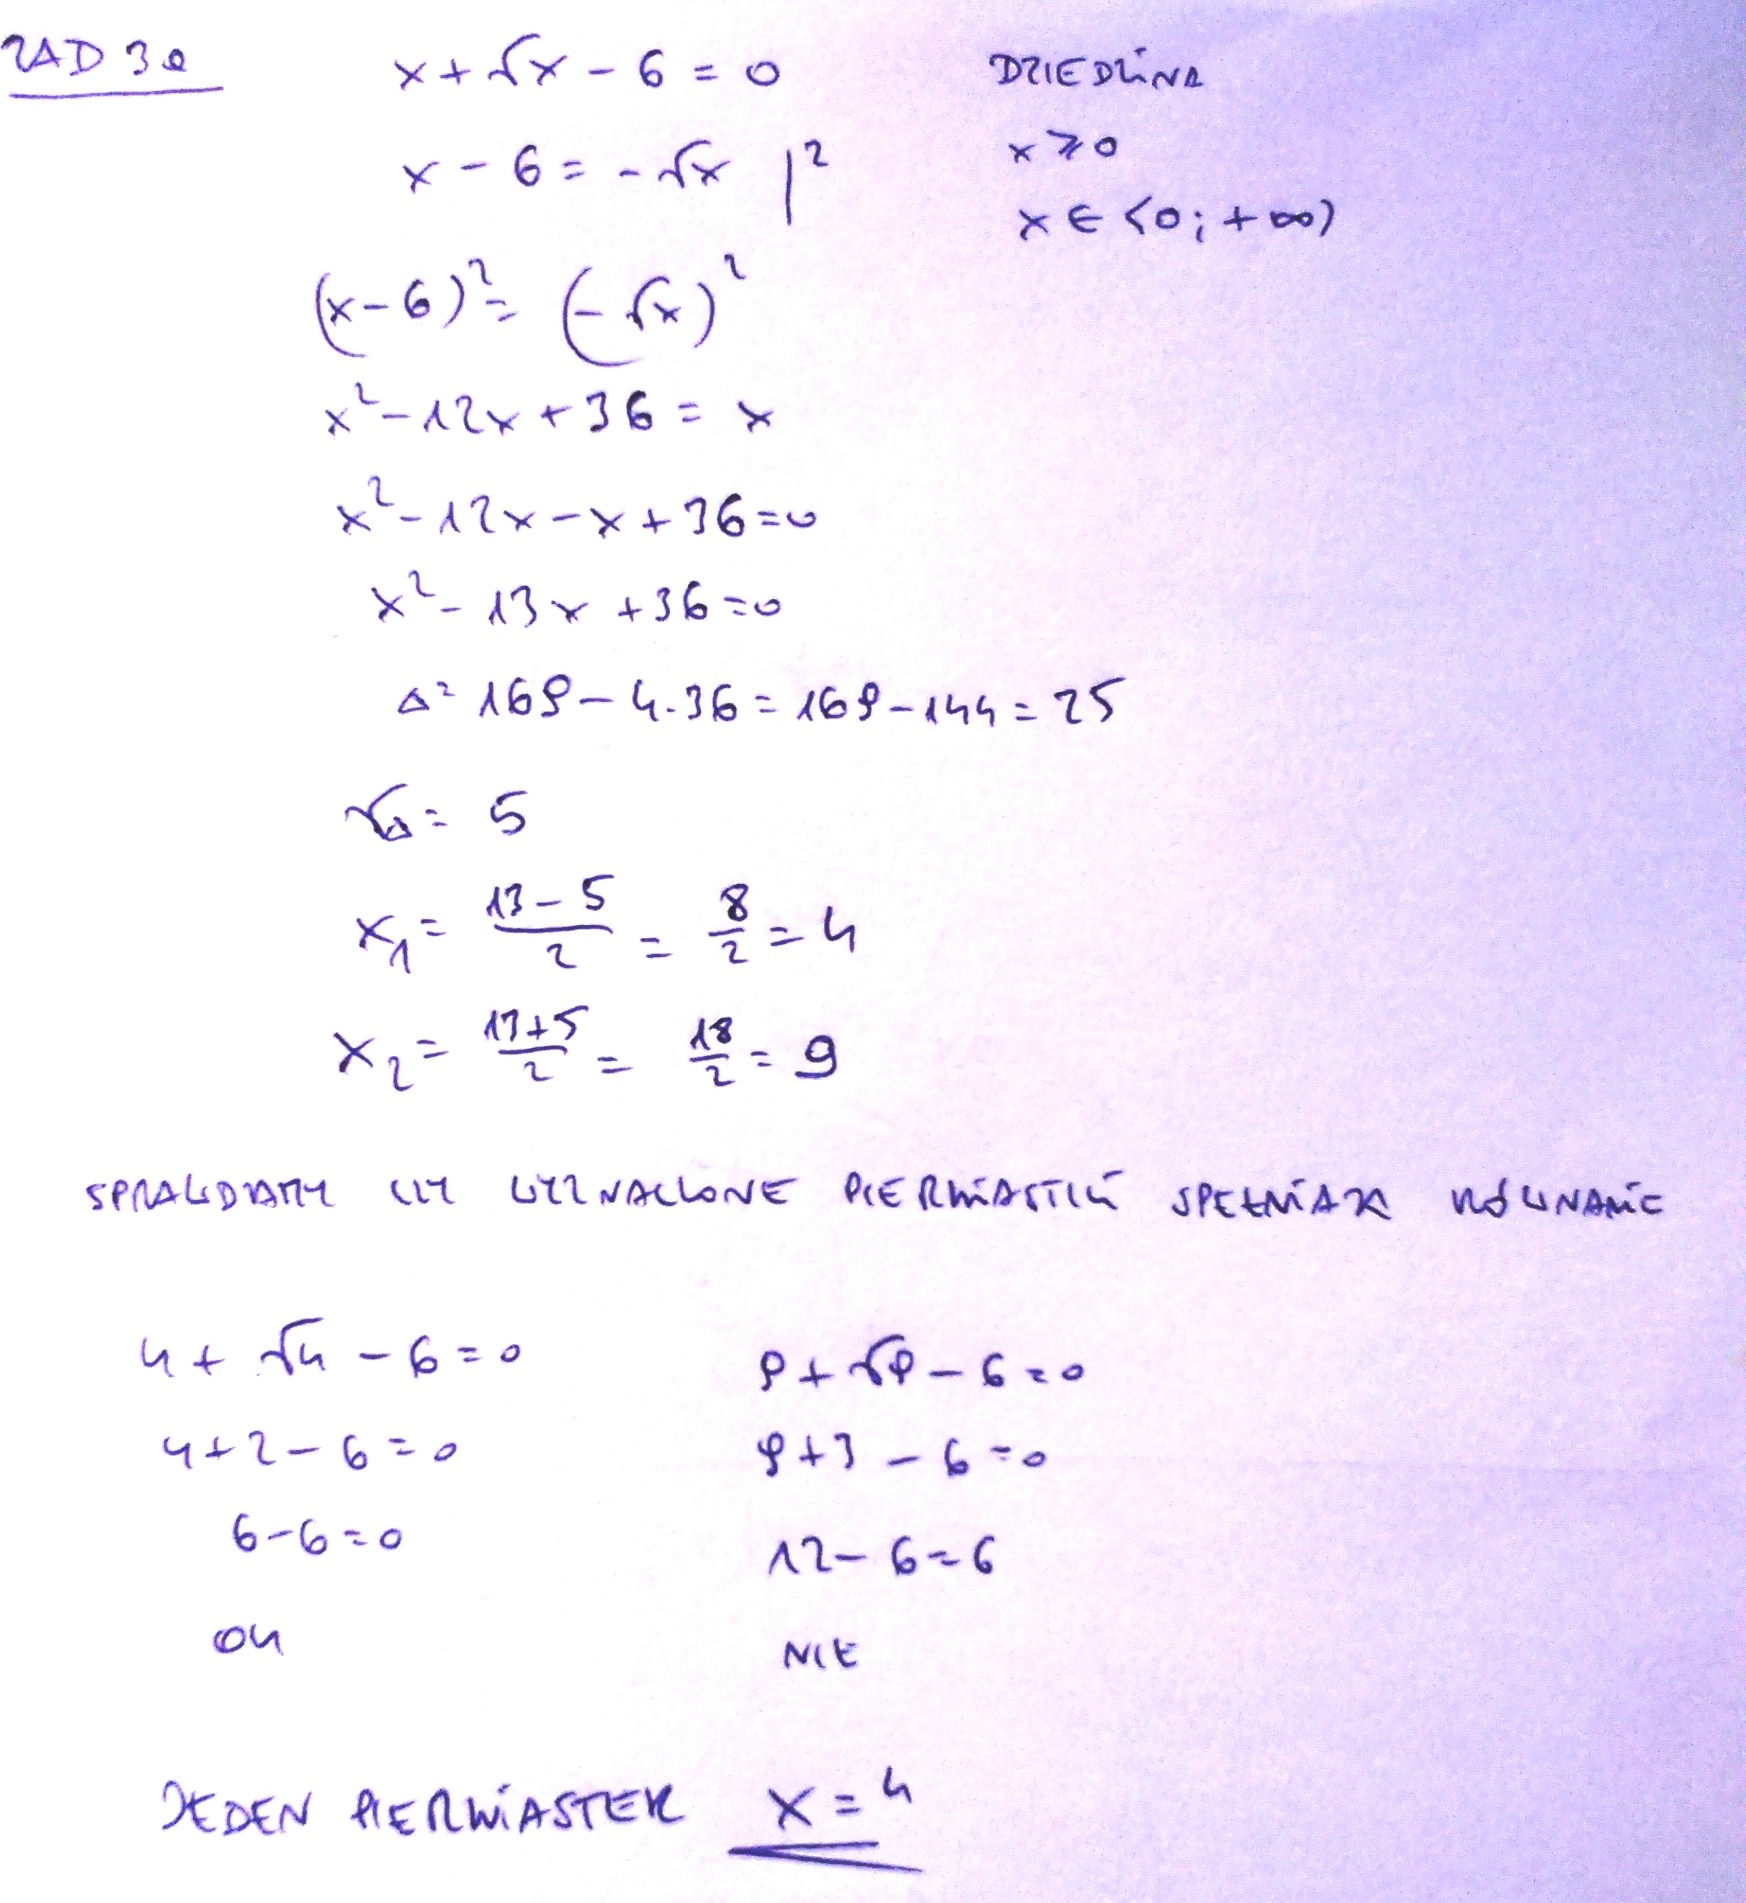 ZAD 3a
x + √x - 6 = 0
DZIEDZINA
x - 6 = -√x |²
x ≥ 0
x ∈ <0; +∞)
(x-6)² = (-√x)²
x² - 12x + 36 = x
x² - 12x - x + 36 = 0
x² - 13x + 36 = 0
Δ = 169 - 4·36 = 169 - 144 = 25
√Δ = 5
x₁ = (13-5)/2 = 8/2 = 4
x₂ = (13+5)/2 = 18/2 = 9
SPRAWDZAMY CZY WYZNACZONE PIERWIASTKI SPEŁNIAJĄ RÓWNANIE
4 + √4 - 6 = 0
4 + 2 - 6 = 0
6 - 6 = 0
OK
9 + √9 - 6 = 0
9 + 3 - 6 = 0
12 - 6 = 6
NIE
JEDEN PIERWIASTEK x = 4